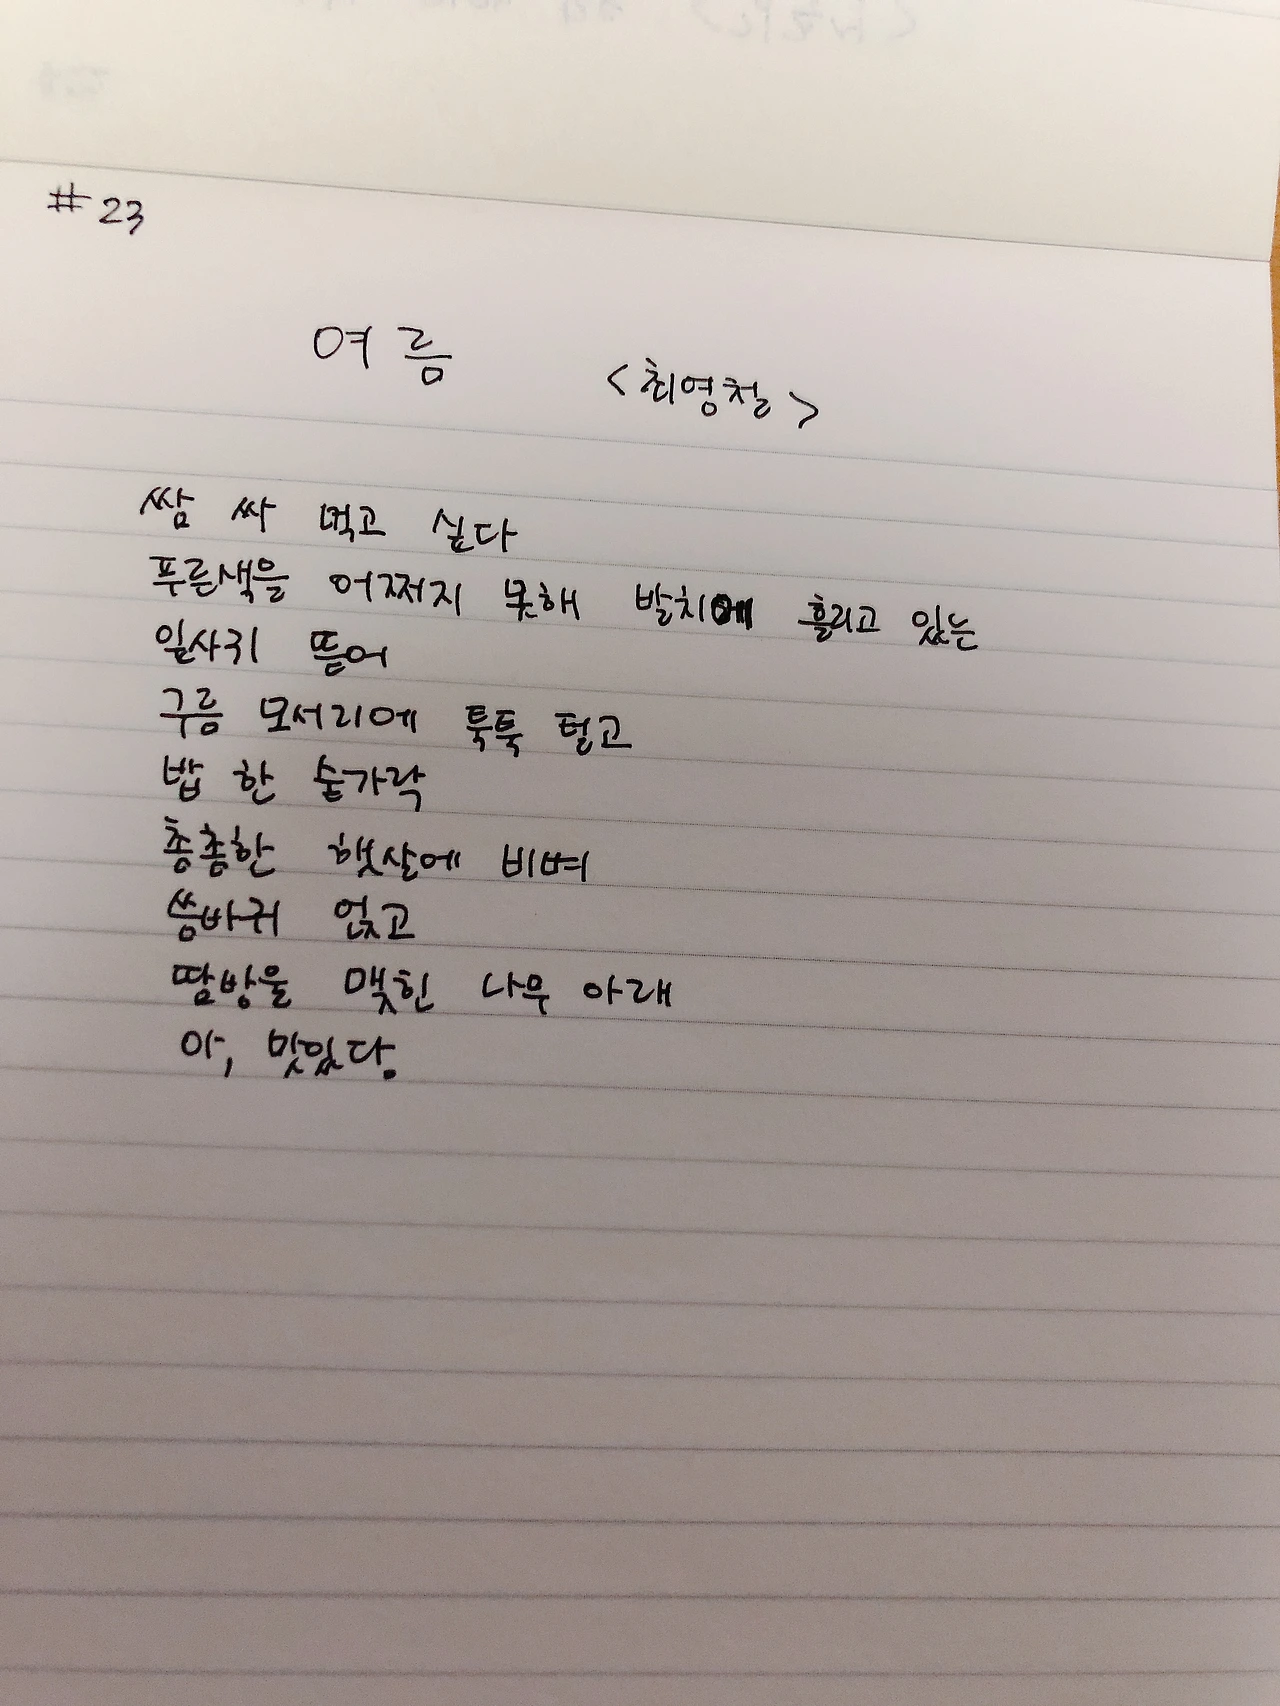 #23
여름 <최영철>
쌈 싸 먹고 싶다
푸른색을 어쩌지 못해 발치에 흘리고 있는
잎사귀 뜯어
구름 모서리에 툭툭 털고
밥 한 숟가락
총총한 햇살에 비벼
씀바귀 얹고
땀방울 맺힌 나무 아래
아, 맛있다.